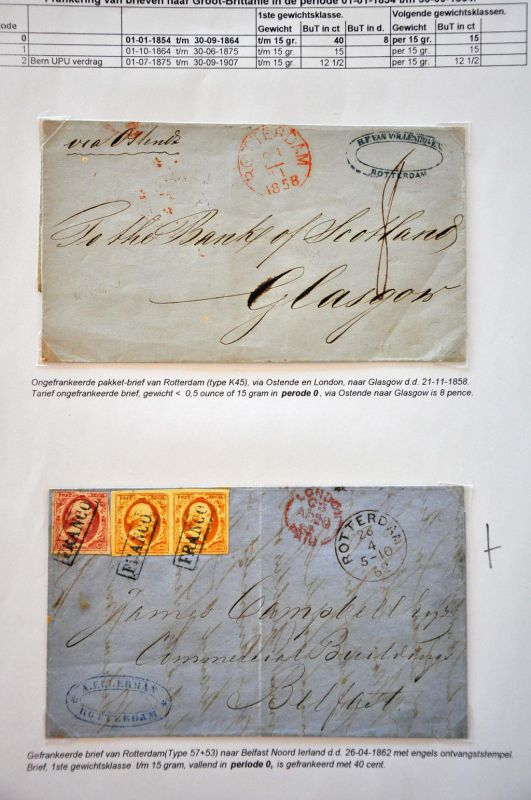 Frankering van brieven naar Groot-Brittanië in de periode 01-01-1854 t/m 30-09-1
1ste gewichtsklasse. Volgende gewichtsklassen.
ode Gewicht BuT in ct BuT in d. Gewicht BuT in ct
0 01-01-1854 t/m 30-09-1864 t/m 15 gr. 40 8 per 15 gr. 15
1 01-10-1864 t/m 30-06-1875 t/m 15 gr. 15 per 15 gr. 15
2 Bern UPU verdrag 01-07-1875 t/m 30-09-1907 t/m 15 gr. 12 1/2 per 15 gr. 12 1/2
via Ostende
ROTTERDAM
1858
H.F. VAN VOLLENHOVEN
ROTTERDAM
8
To the Bank of Scotland
Glasgow
Ongefrankeerde pakket-brief van Rotterdam (type K45), via Ostende en London, naar Glasgow d.d. 21-11-1858.
Tarief ongefrankeerde brief, gewicht < 0,5 ounce of 15 gram in perode 0, via Ostende naar Glasgow is 8 pence.
FRANCO
FRANCO
FRANCO
LONDON
PAID
ROTTERDAM
26
4
5-10
62
James Campbell Esq
Commercial Buildings
Belfast.
A. ELLERMAN
ROTTERDAM
Gefrankeerde brief van Rotterdam(Type 57+53) naar Belfast Noord Ierland d.d. 26-04-1862 met engels ontvangststempel.
Brief, 1ste gewichtsklasse t/m 15 gram, vallend in periode 0, is gefrankeerd met 40 cent.